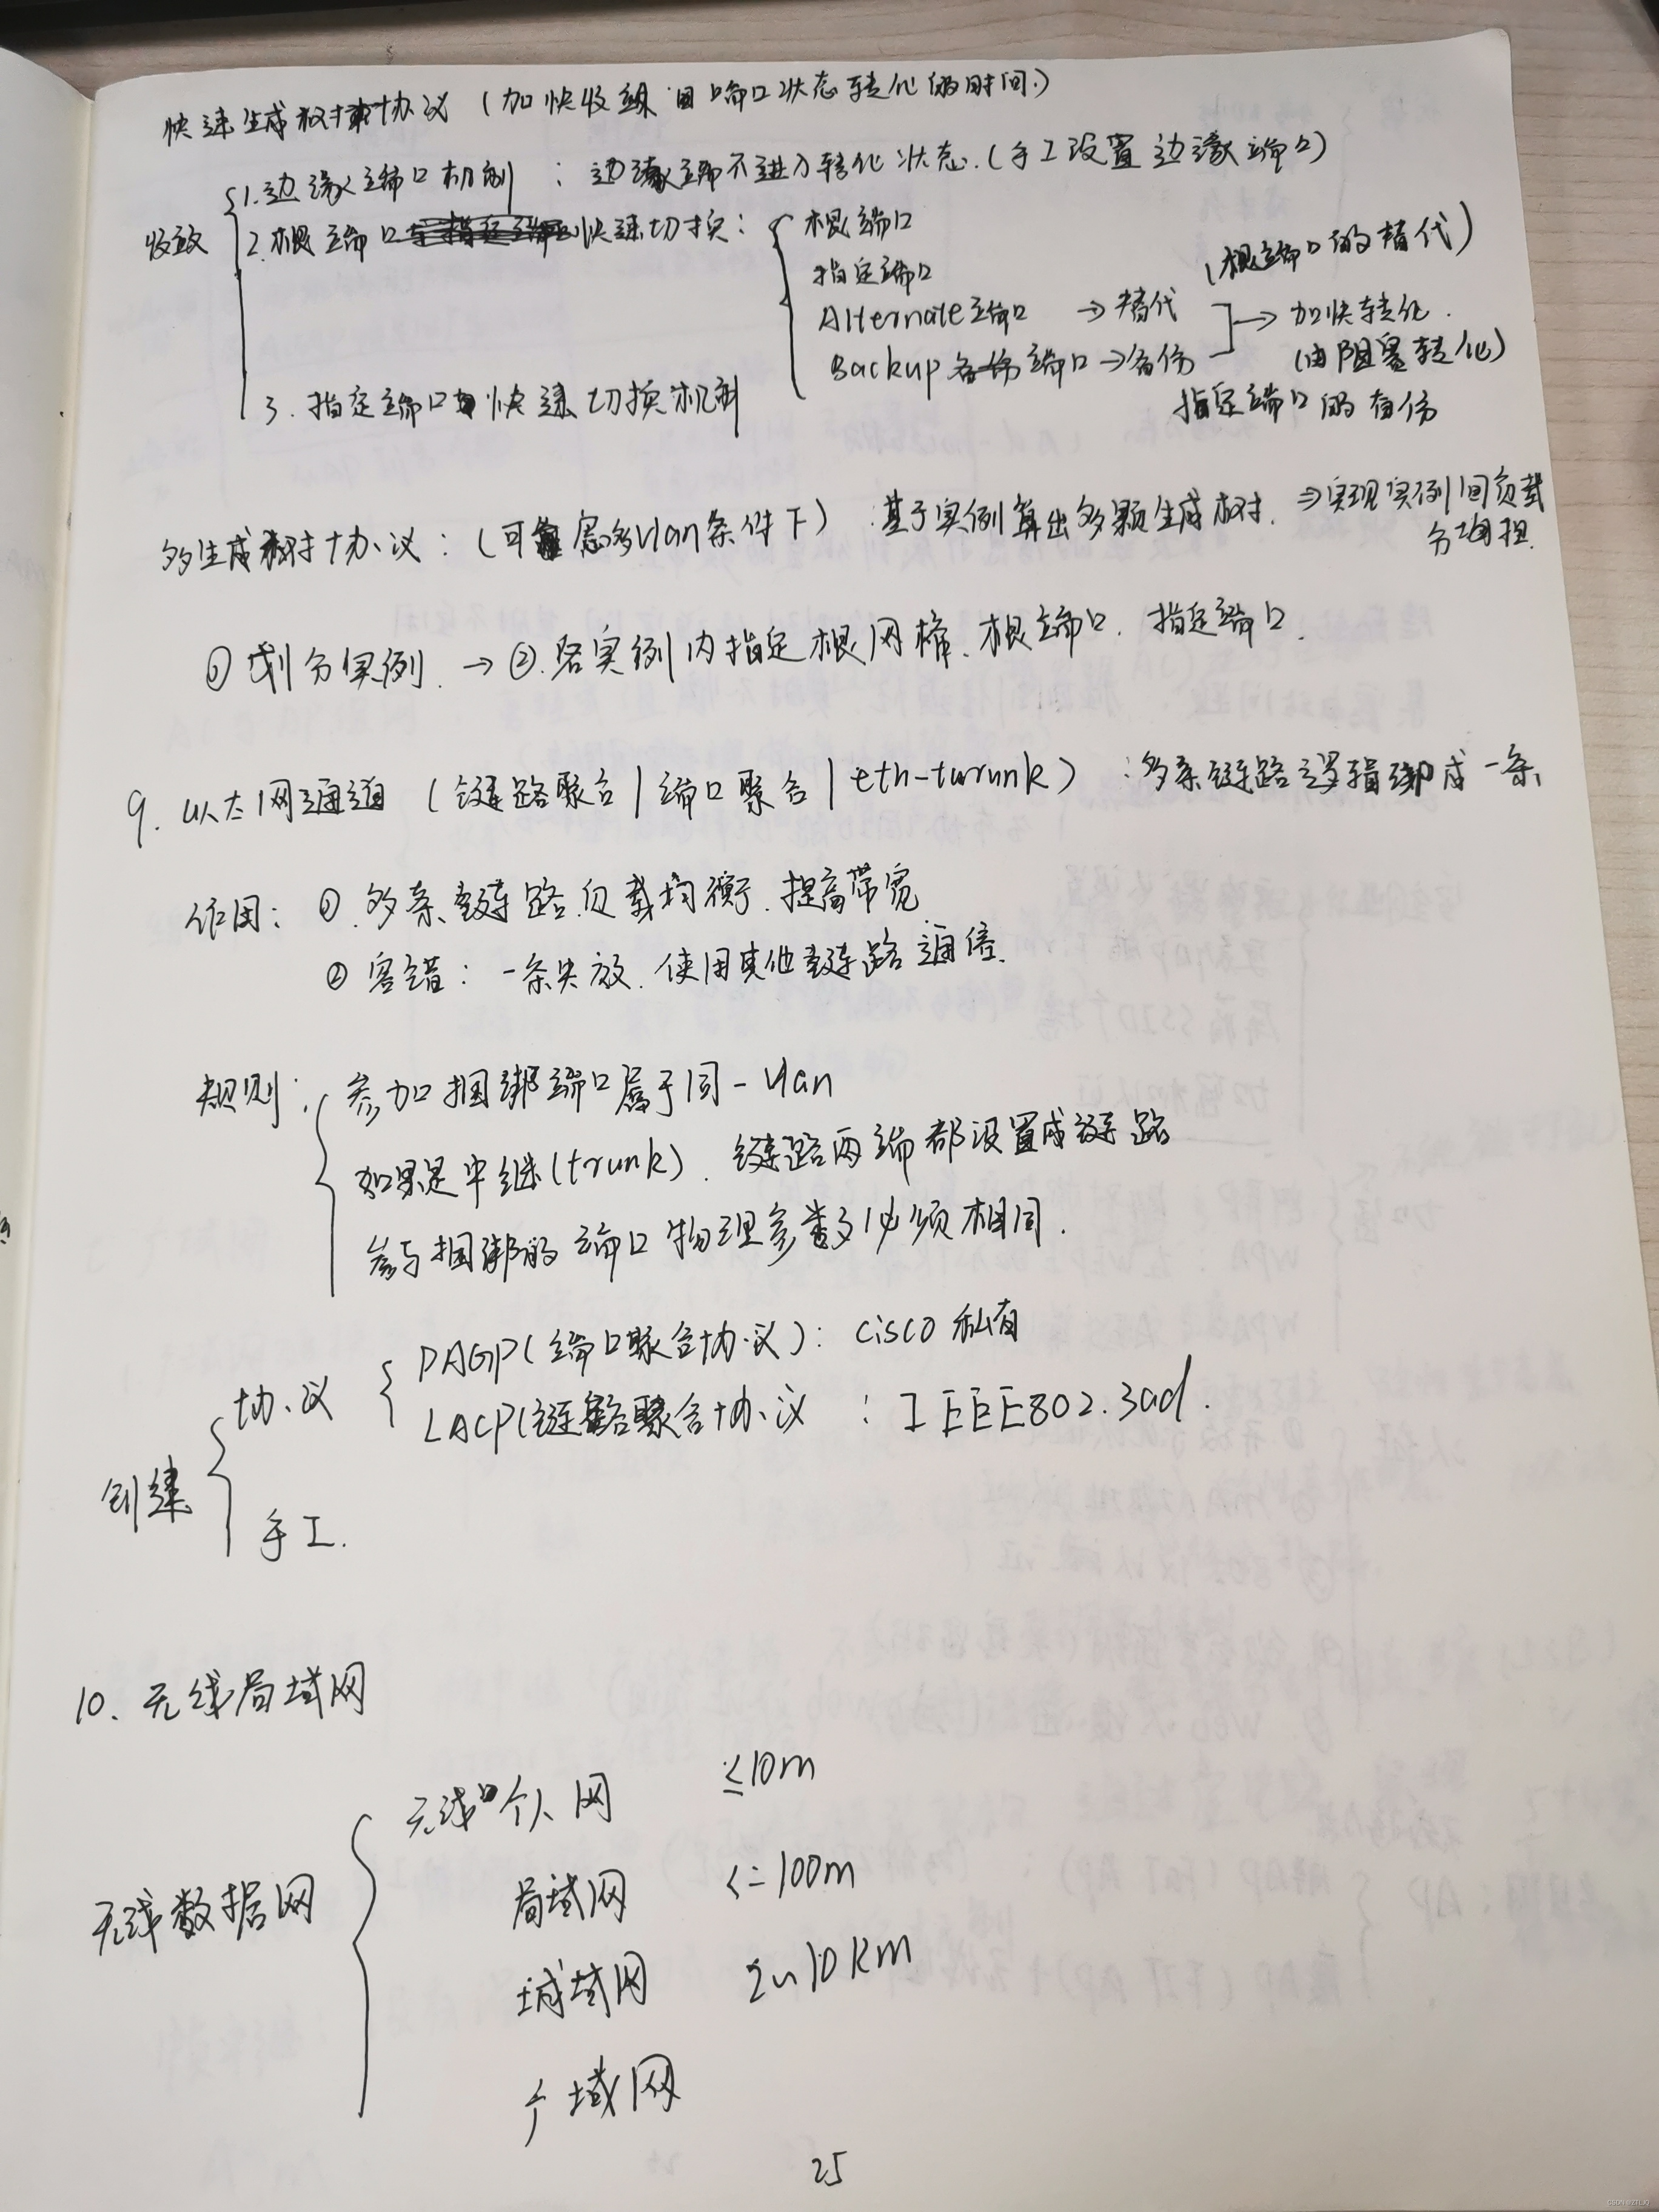 快速生成树协议 (加快收组 端口状态转化的时间.)
1. 边缘端口机制 : 边缘端不进入转化状态. (手工设置边缘端口)
收敛
2. 根端口 快速切换: 根端口
(根端口的替代)
指定端口
Alternate端口 → 替代
→ 加快转化.
Backup 备份端口 → 备份
(由阻塞转化)
3. 指定端口快速切换机制
指定端口的备份
多生成树协议: (可 虑多vlan条件下) 基于实例算出多颗生成树. ⇒ 实现实例间负载
分担.
① 划分实例. → ②. 各实例内指定根网桥、根端口. 指定端口.
9. 以太网通道 (链路聚合 | 端口聚合 | eth-turunk) : 多条链路逻辑绑成一条
作用: ①. 多条链路负载均衡. 提高带宽
② 容错: 一条失效. 使用其他链路通信.
规则: 参加捆绑端口属于同一vlan
如果是中继(trunk). 链路两端都设置成链路
参与捆绑的端口物理参数必须相同.
创建
协议
PAGP(端口聚合协议): cisco 私有
LACP(链路聚合协议 : IEEE802.3ad.
手工.
10. 无线局域网
无线数据网
无线个人网 ≤10m
局域网 <=100m
城域网 10km
广域网
25